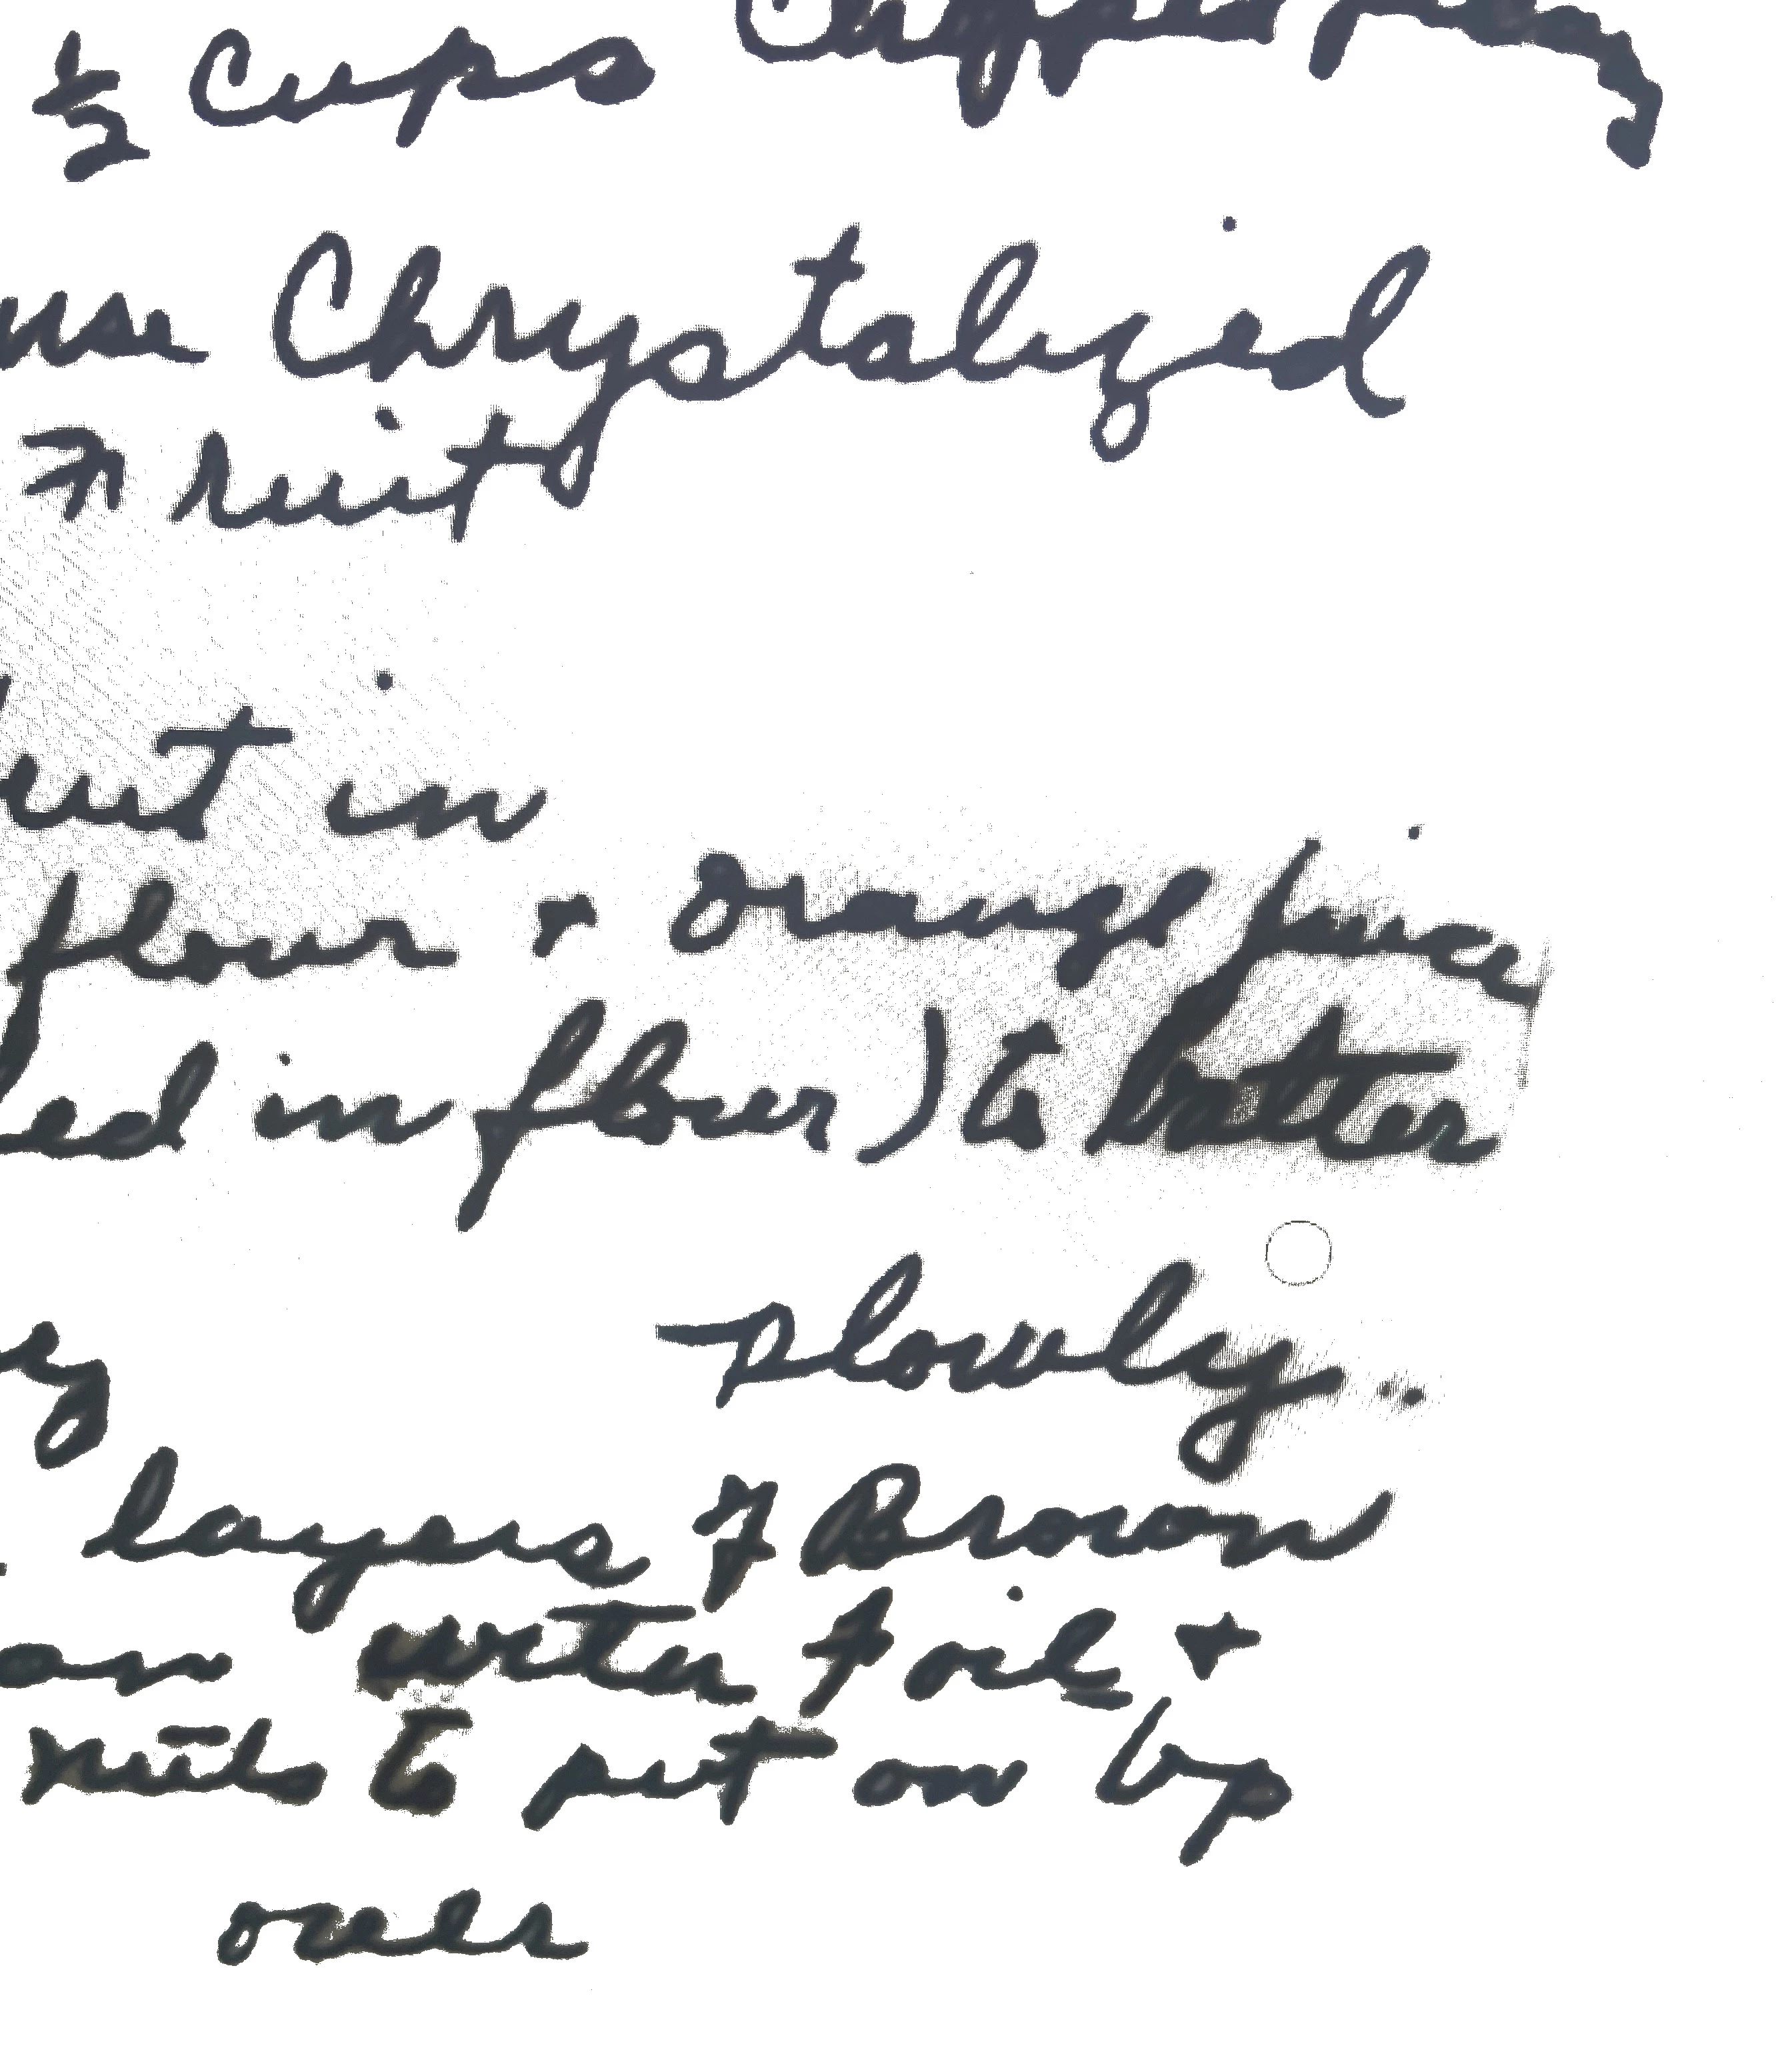 ½ Cups Chopped
use Chrystalized
Fruit
in
flour + orange juice
ed in flour) to batter
slowly..
layers of Brown
water & oil +
nuts to put on top
over